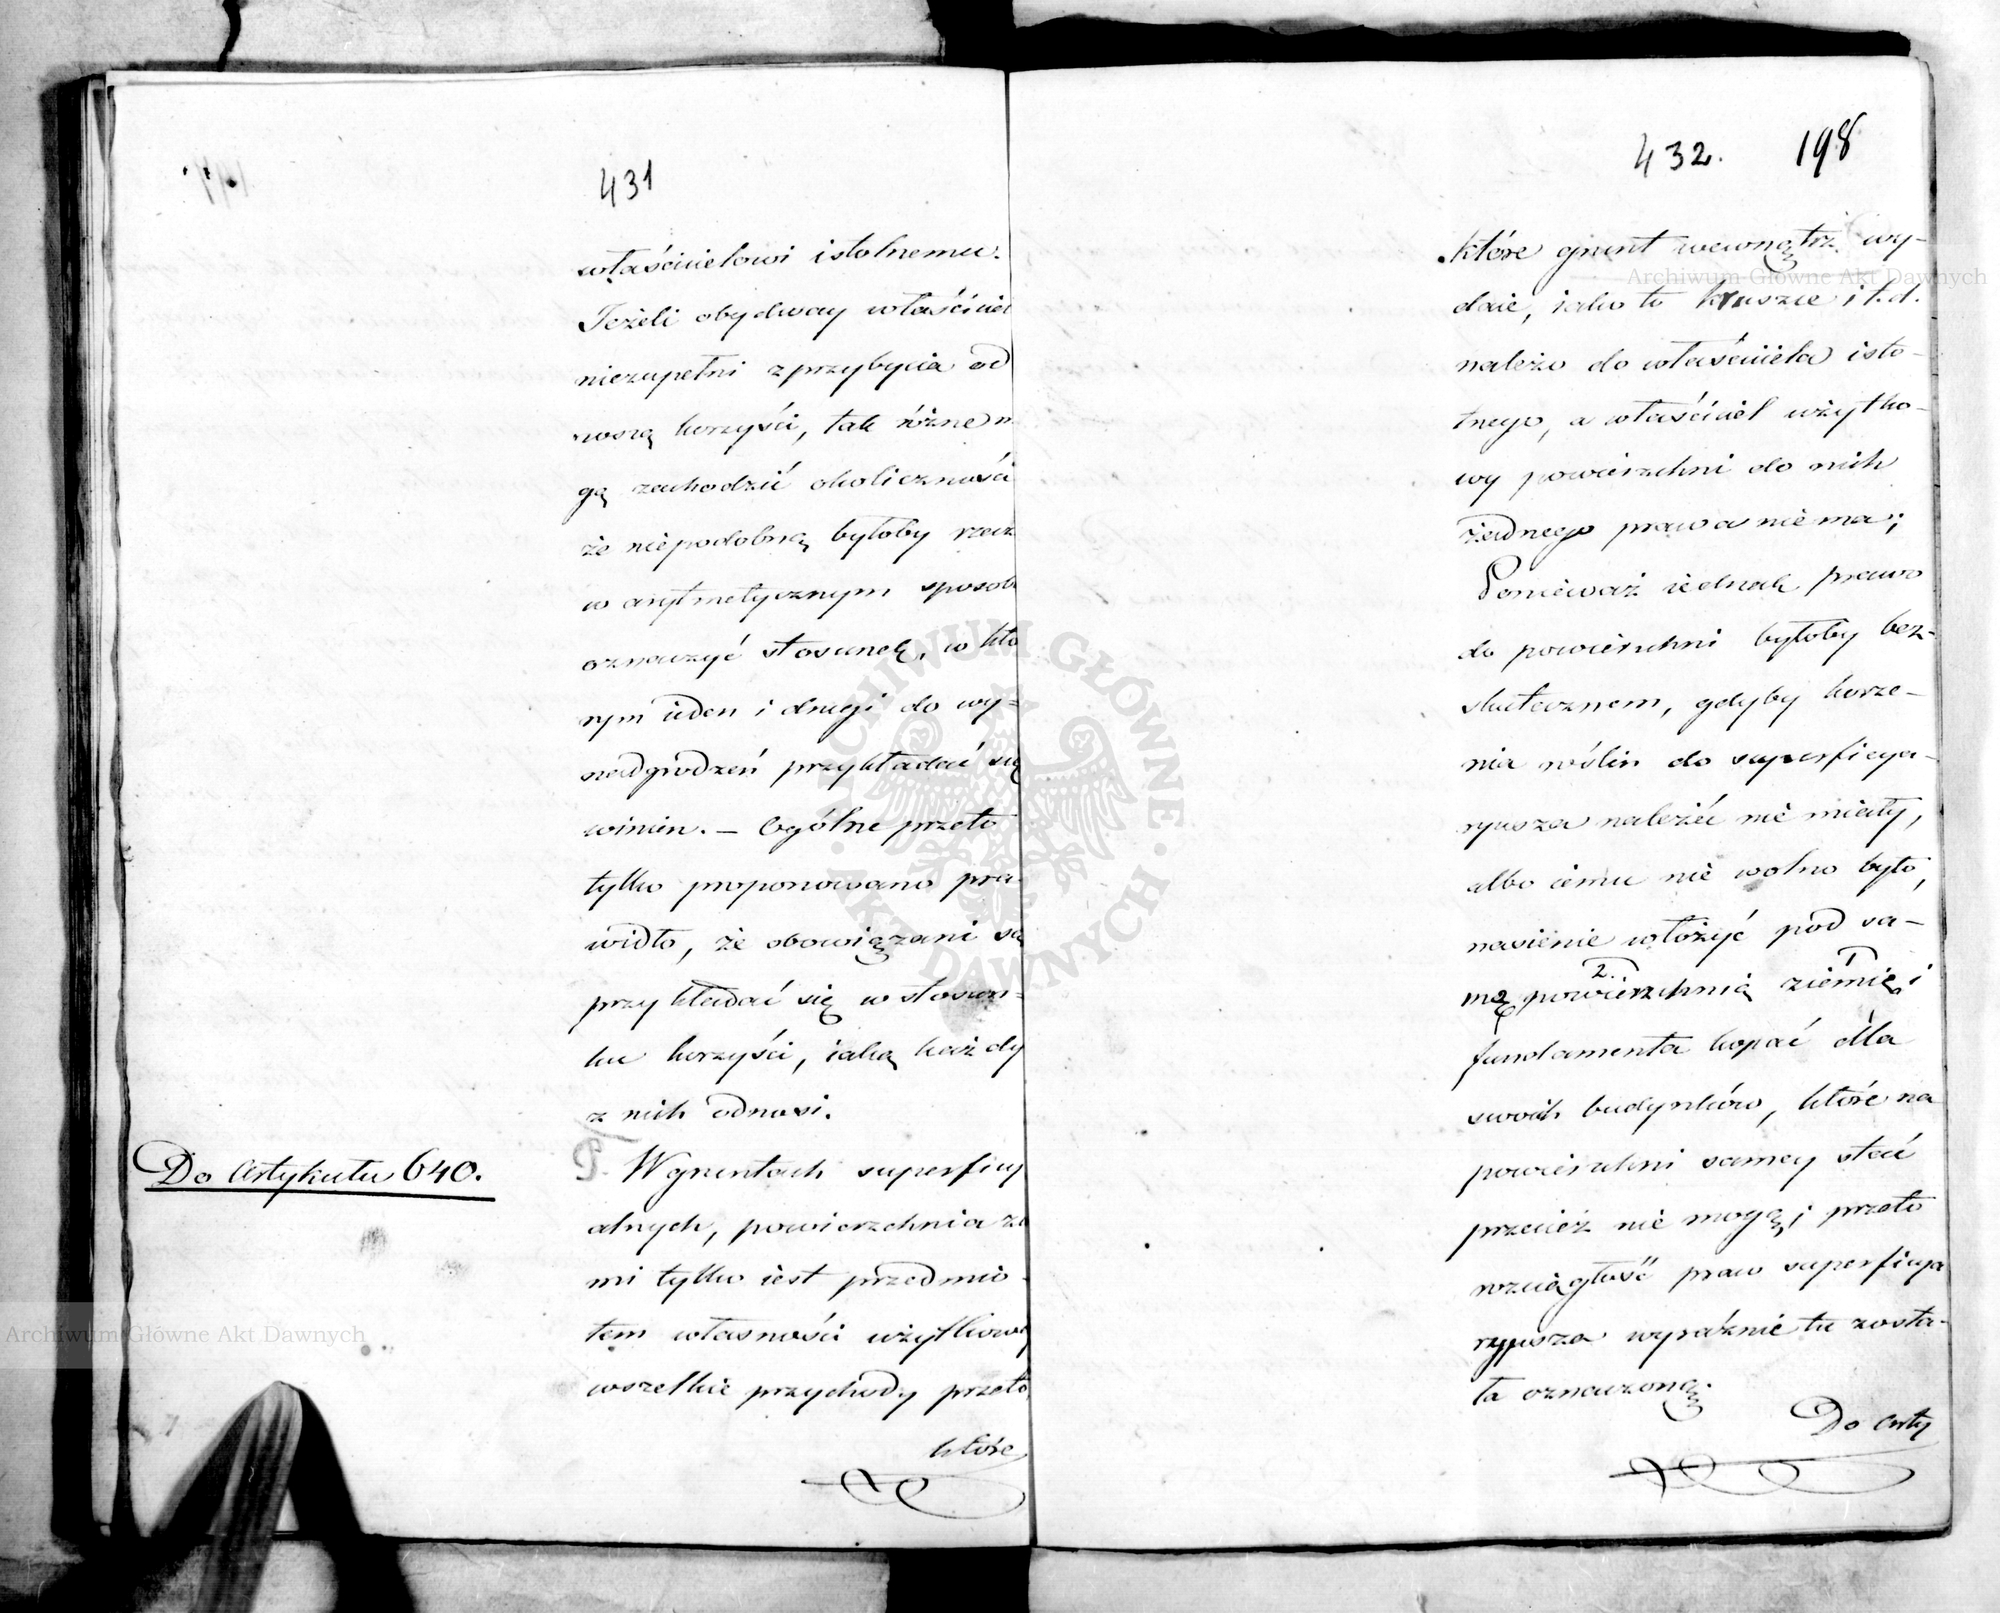 431
właścicielowi istotnemu.
Jeżeli obydway właściciel
niezupełni z przybycia od
noszą korzyści, tak różne m
gą zachodzić okoliczności
że niepodobną byłoby rzecz
w arytmetycznym sposob
oznaczyć stosunek, w któ
rym ieden i drugi do wy=
nadgrodzeń przykładać się
winien. — Ogólne przeto
tylko proponowano pra-
widło, że obowiązani są
przykładać się w stosun=
ku korzyści, iaką każdy
z nich odnosi.
Do Artykułu 640.
W gruntach superficy
alnych, powierzchnia zi
mi tylko iest przedmio-
tem własności użytkowéy
wszelkie przychody przeto,
które
432. 198
które grunt wewnątrz wy-
daie, iako to kruszce i t.d.
należo do właściciela isto-
tnego, a właściciel użytko-
wy powierzchni do nich
żadnego prawa nie ma;
Ponieważ iednak prawo
do powierzchni byłoby bez-
skutecznem, gdyby korze-
nia roślin do superficya-
ryusza należéć nie miały,
albo iemu nie wolno było,
nasienie włożyć pod sa-
2. 1
mą powierzchnią ziemię i
fundamenta kopać dla
swoich budynków, które na
powierzchni samey stać
przecież nie mogą; przeto
rozciągłość praw superficya
ryusza wyraźnie tu zosta-
ła oznaczoną.
Do Arty
Archiwum Główne Akt Dawnych
Archiwum Główne Akt Dawnych
ARCHIWUM GŁÓWNE · AKT DAWNYCH ·